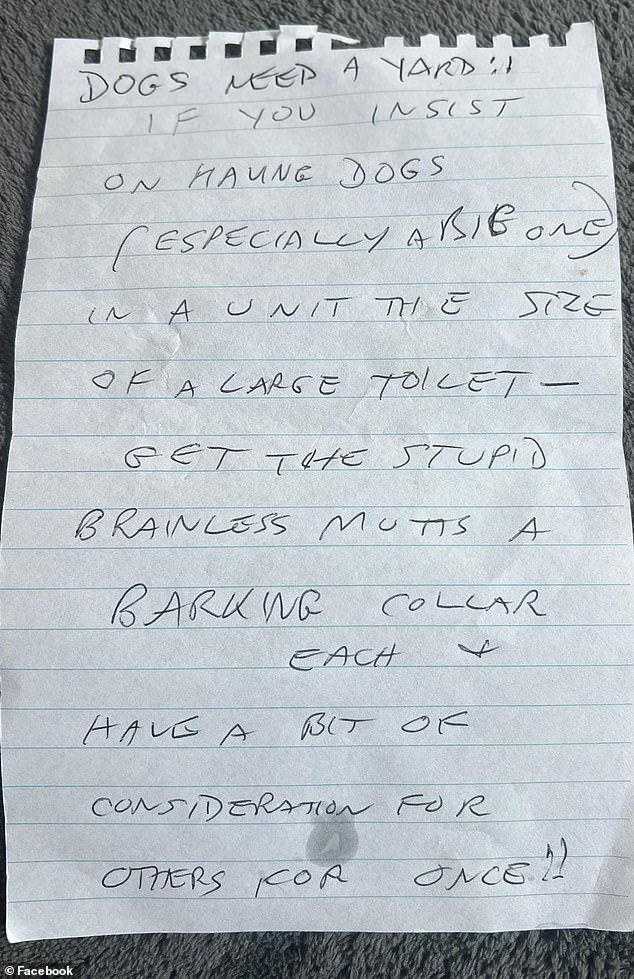 DOGS NEED A YARD!!
IF YOU INSIST
ON HAVING DOGS
(ESPECIALLY A BIG ONE)
IN A UNIT THE SIZE
OF A LARGE TOILET —
GET THE STUPID
BRAINLESS MUTTS A
BARKING COLLAR
EACH +
HAVE A BIT OF
CONSIDERATION FOR
OTHERS FOR ONCE!!
© Facebook